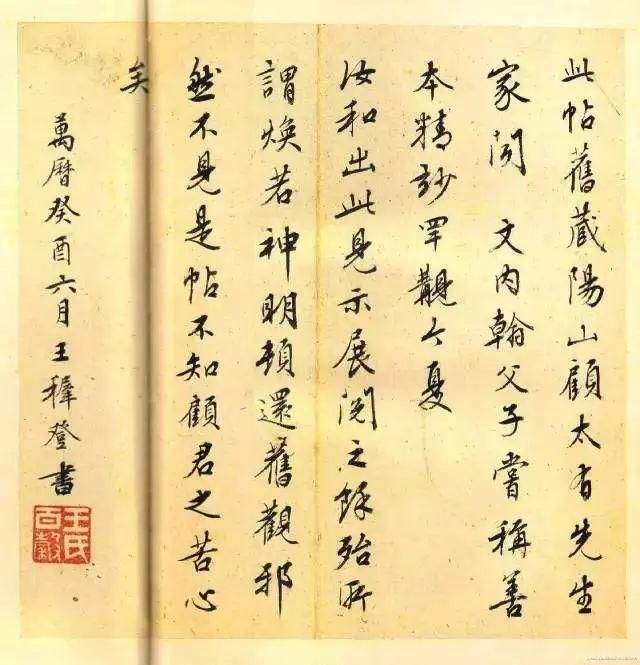 此帖舊藏陽山顧太有先生
家閒 文內翰父子嘗稱善
本精妙罕覯今夏
汝和出此見示展閱之餘殆所
謂煥若神明頓還舊觀邪
然不見是帖不知顧君之苦心
矣
萬曆癸酉六月王穉登書
王氏
百穀